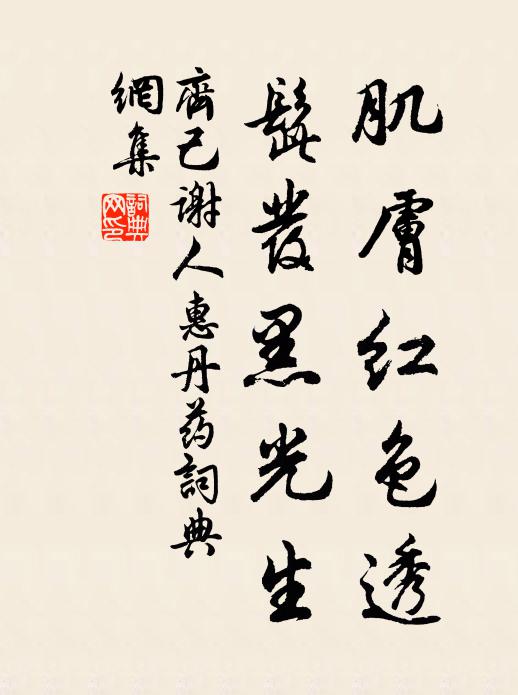 肌膚红色透
髭發黑光生
齊己谢人惠丹药詞典
網集
詞典
网印